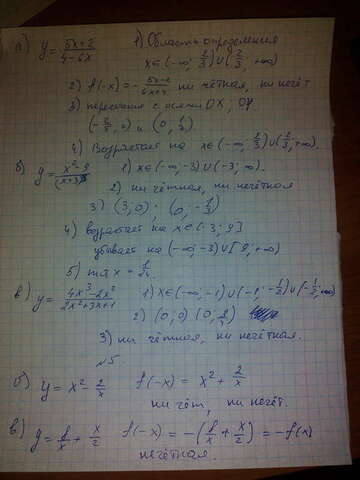 а) y = (5x+2)/(4-6x) 1) Область определения
x∈(-∞, 2/3)∪(2/3, +∞)
2) f(-x) = - (5x-2)/(6x+4) ни чётная, ни нечёт
3) пересечение с осями OX; OY
(-2/5, 0) и (0, 1/2).
4) Возрастает на x∈(-∞, 2/3)∪(2/3; +∞).
б) 1) x∈(-∞, -3)∪(-3; ∞).
2) ни чётная, ни нечётная
3) (3,0);
4) возрастает на x∈(-3; 9]
убывает на (-∞; -3)∪[9, +∞)
5) max = 1/24.
в) y = (4x³-2x²)/(2x²+3x+1) 1) x∈(-∞, -1)∪(-1; -1/2)∪(-1/2; ∞)
2) (0,0)
3) ни чётная, ни нечётная.
№5.
б) y = x² - 2/x f(-x) = x² + 2/x
ни чёт, ни нечёт.
в) y = 1/x + x/2 f(-x) = -(1/x + x/2) = -f(x)
нечётная.